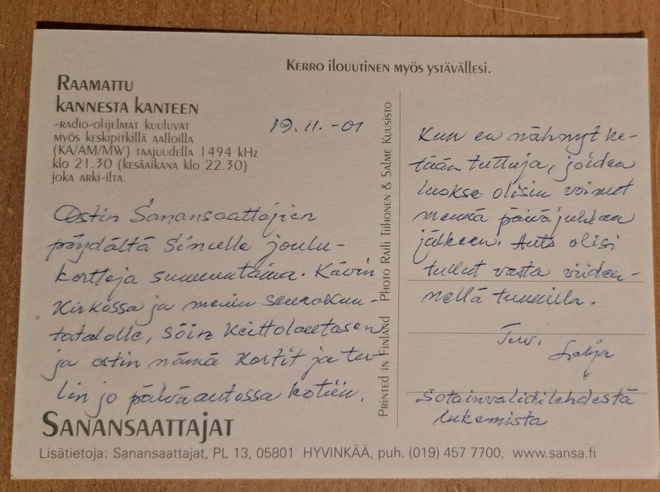 KERRO ILOUUTINEN MYÖS YSTÄVÄLLESI.
RAAMATTU
KANNESTA KANTEEN
-RADIO-OHJELMAT KUULUVAT
MYÖS KESKIPITKILLÄ AALLOILLA
(KA/AM/MW) TAAJUUDELLA 1494 KHZ
KLO 21.30 (KESÄAIKANA KLO 22.30)
JOKA ARKI-ILTA.
19.11.-01
Ostin Sanansaattajien
pöydältä Sinulle joulu-
kortteja sunnuntaina. Kävin
kirkossa ja menin seurakun-
tatalolle, söin keittolautasen
ja ostin nämä kortit ja tu-
lin jo päiväautossa kotiin.
SANANSAATTAJAT
Lisätietoja: Sanansaattajat, PL 13, 05801 HYVINKÄÄ, puh. (019) 457 7700, www.sansa.fi
PRINTED IN FINLAND PHOTO RAILI TIIHONEN & SALME KUUSISTO
Kun en nähnyt ke-
tään tuttuja, joiden
luokse olisin voinut
mennä päiväjuhlan
jälkeen. Auto olisi
tullut vasta viiden-
nellä tunnilla.
Terv.
Sotainvalidilehdestä
lukemista